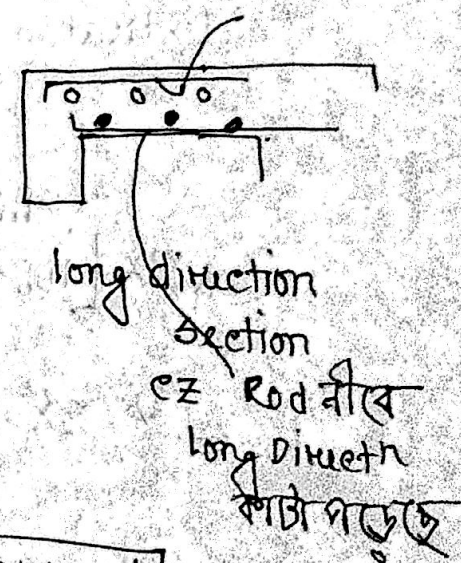 long diruction
Section
ez Rod नীচে
Long Directn
কাটা পড়েছে